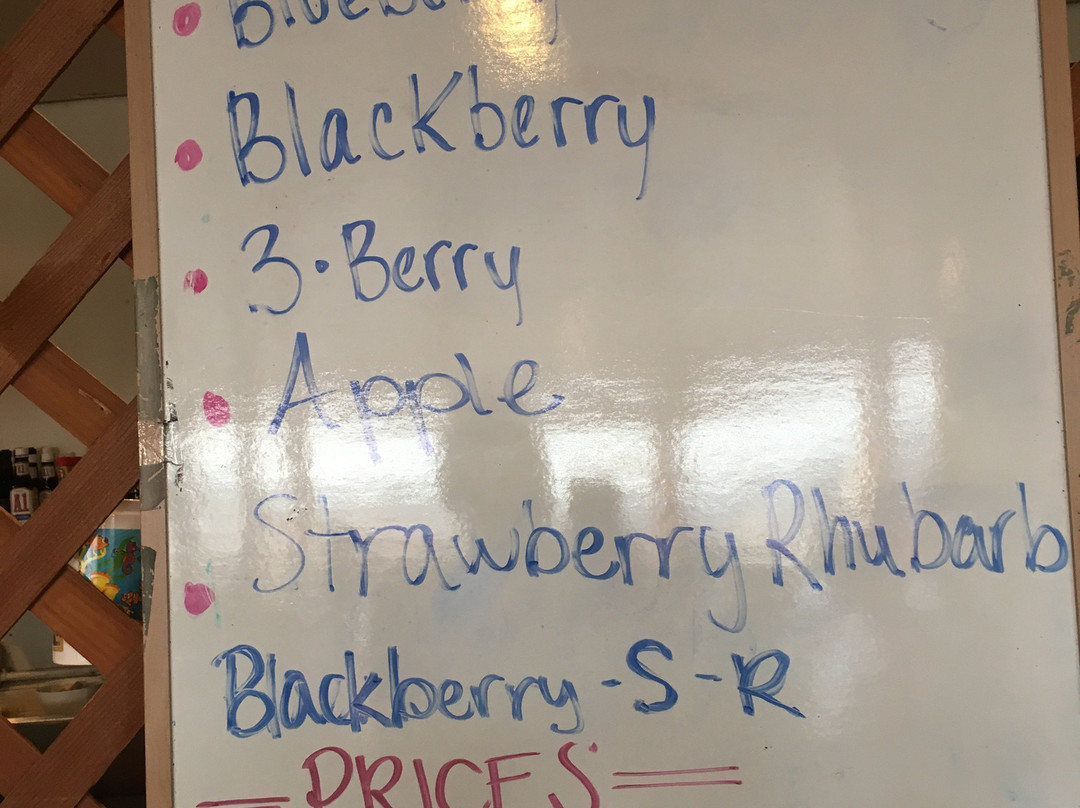 Blueberry
Blackberry
3 · Berry
Apple
Strawberry Rhubarb
Blackberry - S - R
PRICES
A1